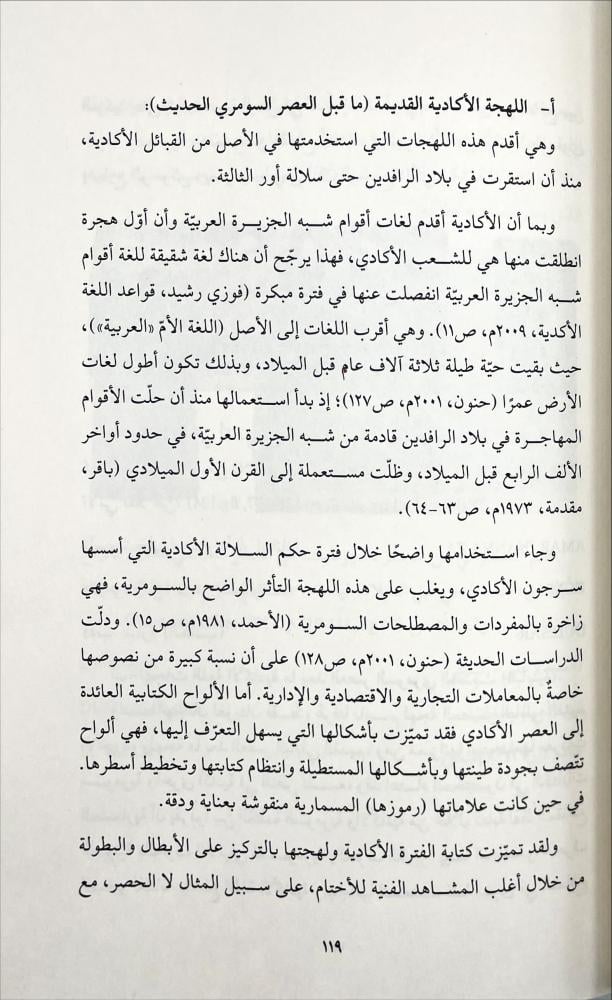 أ- اللهجة الأكادية القديمة (ما قبل العصر السومري الحديث):
وهي أقدم هذه اللهجات التي استخدمتها في الأصل من القبائل الأكادية،
منذ أن استقرت في بلاد الرافدين حتى سلالة أور الثالثة.
وبما أن الأكادية أقدم لغات أقوام شبه الجزيرة العربيّة وأن أوّل هجرة
انطلقت منها هي للشعب الأكادي، فهذا يرجّح أن هناك لغة شقيقة للغة أقوام
شبه الجزيرة العربيّة انفصلت عنها في فترة مبكرة (فوزي رشيد، قواعد اللغة
الأكدية، ٢٠٠٩م، ص١١). وهي أقرب اللغات إلى الأصل (اللغة الأمّ «العربية»)،
حيث بقيت حيّة طيلة ثلاثة آلاف عام قبل الميلاد، وبذلك تكون أطول لغات
الأرض عمرًا (حنون، ٢٠٠١م، ص١٢٧)؛ إذ بدأ استعمالها منذ أن حلّت الأقوام
المهاجرة في بلاد الرافدين قادمة من شبه الجزيرة العربيّة، في حدود أواخر
الألف الرابع قبل الميلاد، وظلّت مستعملة إلى القرن الأول الميلادي (باقر،
مقدمة، ١٩٧٣م، ص٦٣-٦٤).
وجاء استخدامها واضحًا خلال فترة حكم السلالة الأكادية التي أسسها
سرجون الأكادي، ويغلب على هذه اللهجة التأثر الواضح بالسومرية، فهي
زاخرة بالمفردات والمصطلحات السومرية (الأحمد، ١٩٨١م، ص١٥). ودلّت
الدراسات الحديثة (حنون، ٢٠٠١م، ص١٢٨) على أن نسبة كبيرة من نصوصها
خاصةً بالمعاملات التجارية والاقتصادية والإدارية. أما الألواح الكتابية العائدة
إلى العصر الأكادي فقد تميّزت بأشكالها التي يسهل التعرّف إليها، فهي ألواح
تتّصف بجودة طينتها وبأشكالها المستطيلة وانتظام كتابتها وتخطيط أسطرها.
في حين كانت علاماتها (رموزها) المسمارية منقوشة بعناية ودقة.
ولقد تميّزت كتابة الفترة الأكادية ولهجتها بالتركيز على الأبطال والبطولة
من خلال أغلب المشاهد الفنية للأختام، على سبيل المثال لا الحصر، مع
١١٩